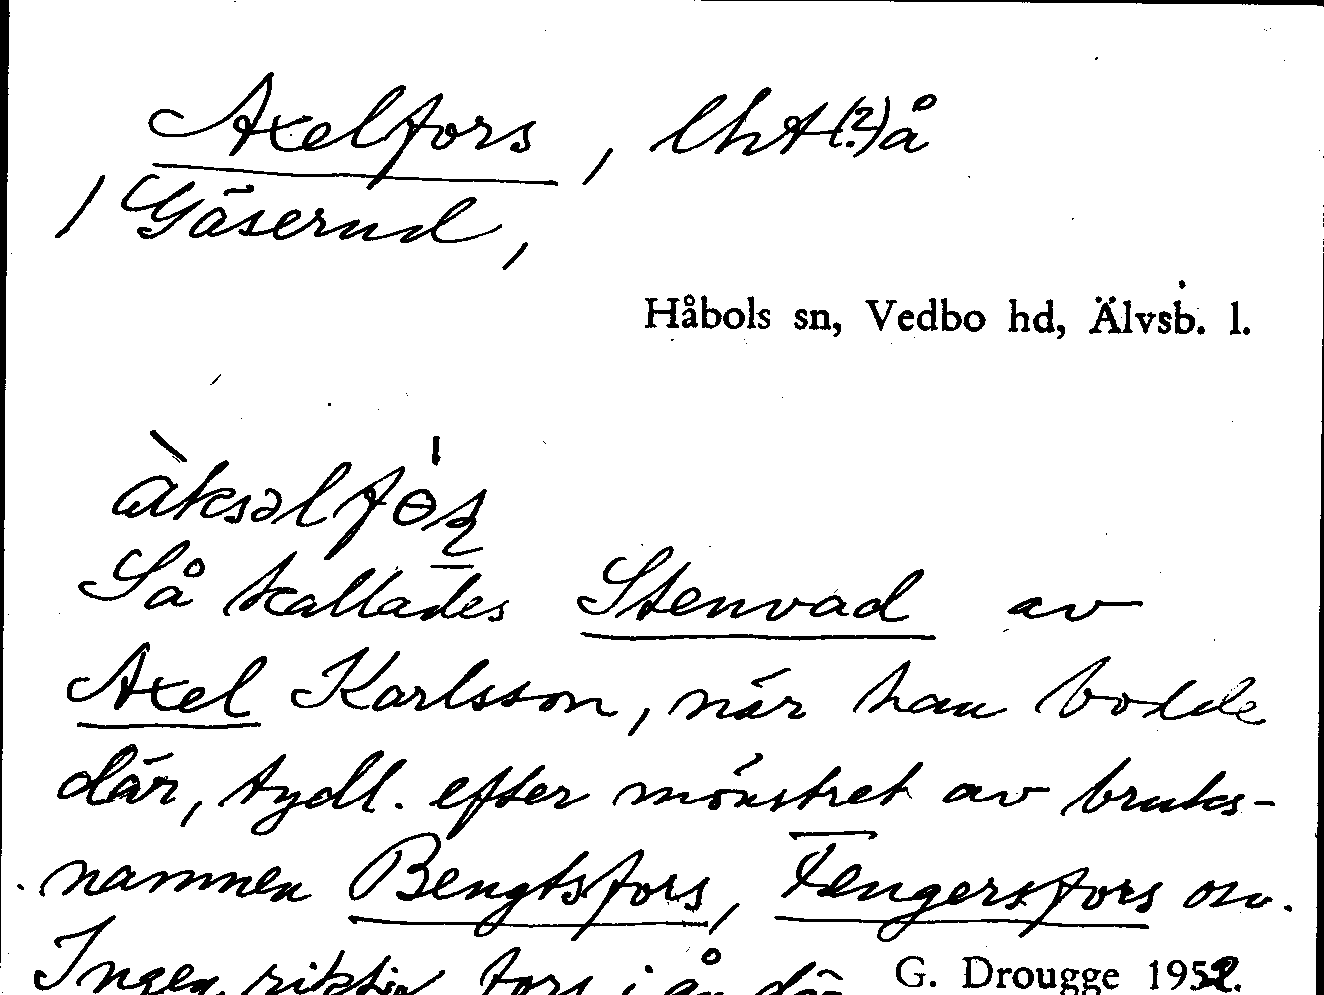 Axelfors, lht(?) å
/ Gäserud,
Håbols sn, Vedbo hd, Älvsb. l.
àksəlfɵ́ʂ
Så kallades Stenvad av
Axel Karlsson, när han bodde
där, tydl. efter mönstret av bruks-
namnen Bengtsfors, Fengersfors osv.
Ingen riktig fors i ån där
G. Drougge 1952.